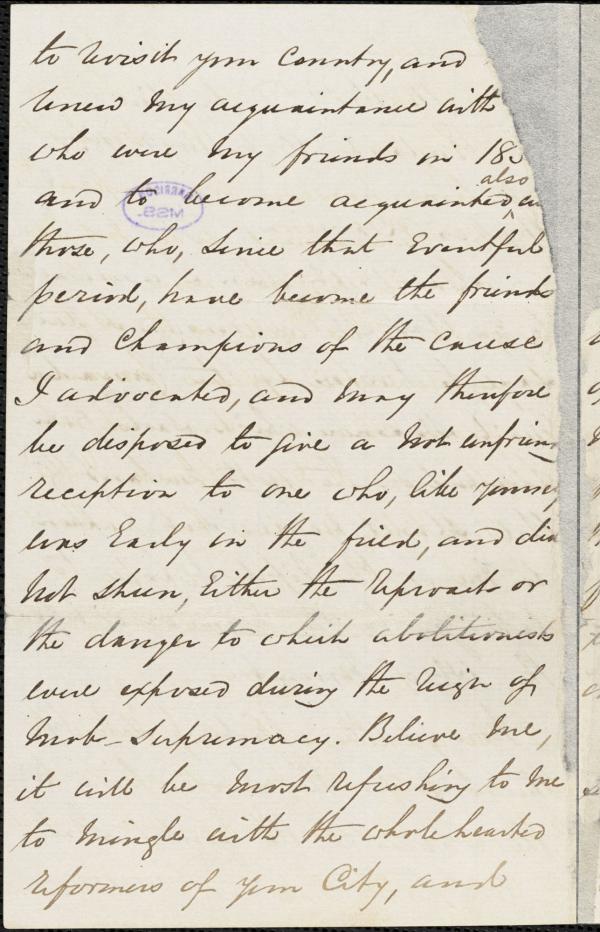 to revisit your Country, and
renew my acquaintance with
who were my friends in 18
also
and to become acquainted
those, who, since that Eventful
period, have become the friends
and Champions of the Cause
I advocated, and may therefore
be disposed to give a not unfrien
reception to one who, like yourse
was Early in the field, and did
not shun, Either the reproach or
the danger to which abolitionists
were exposed during the reign of
Mob-Supremacy. Believe me,
it will be most refreshing to me
to mingle with the wholehearted
reformers of your City, and